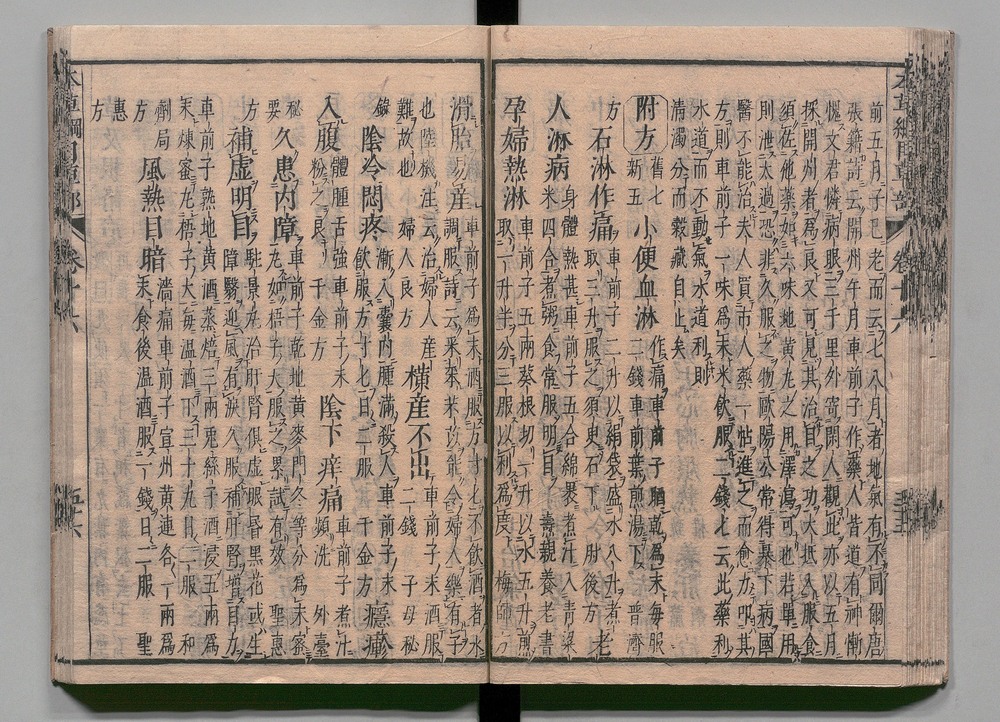 本草綱目草部 卷十六
前五月子已老而云七八月者地氣有不同爾唐
張籍詩云開州午月車前子作藥人皆道有神慚
愧文君憐病眼三千里外寄閑人觀此亦以五月
採開州者爲良又可見其治目之功大抵入服食
須佐他藥如六味地黄丸之用澤瀉可也若單用
則泄太過恐非久服之物歐陽公常得暴下病國
醫不能治夫人買市人藥一帖進之而愈力叩其
方則車前子一味爲末米飲服二錢匕云此藥利
水道而不動氣水道利則
清濁分而穀藏自止矣
附方 舊七新五 小便血淋 作痛車前子晒乾爲末每服二錢車前葉煎湯下 普濟
方 石淋作痛 車前子二升以絹袋盛水八升煮取三升服之須臾石下 肘後方 老
人淋病 身體熱甚車前子五合綿裹煮汁入青粱米四合煮粥食常服明目 壽親養老書
孕婦熱淋 車前子五兩葵根切一升以水五升煎取一升半分三服以利爲度 梅師
滑胎易産 車前子爲末酒服方寸匕不飲酒者水調服詩云采采芣苢能令婦人樂有子
也陸機注云治婦人産難故也 婦人良方 横産不出 車前子末酒服二錢 子母秘
録 陰冷悶疼 漸入囊内腫滿殺人車前子末飲服方寸匕日二服 千金方 癮𤺋
入腹 體腫舌強車前子末粉之良 千金方 陰下痒痛 車前子煮汁頻洗 外臺
秘要 久患内障 車前子乾地黄麥門冬等分爲末蜜丸如梧子大服之累試有效 聖惠
方 補虚明目 駐景丸治肝腎俱虚眼昏黑花或生障翳迎風有淚久服補肝腎增目力
車前子熟地黄酒蒸焙三兩兎絲子酒浸五兩爲末煉蜜丸梧子大毎温酒下三十九日二服 和
劑局方 風熱目暗 濇痛車前子宣州黄連各一兩爲末食後温酒服一錢日二服 聖
惠方
本草綱目草部 卷十六